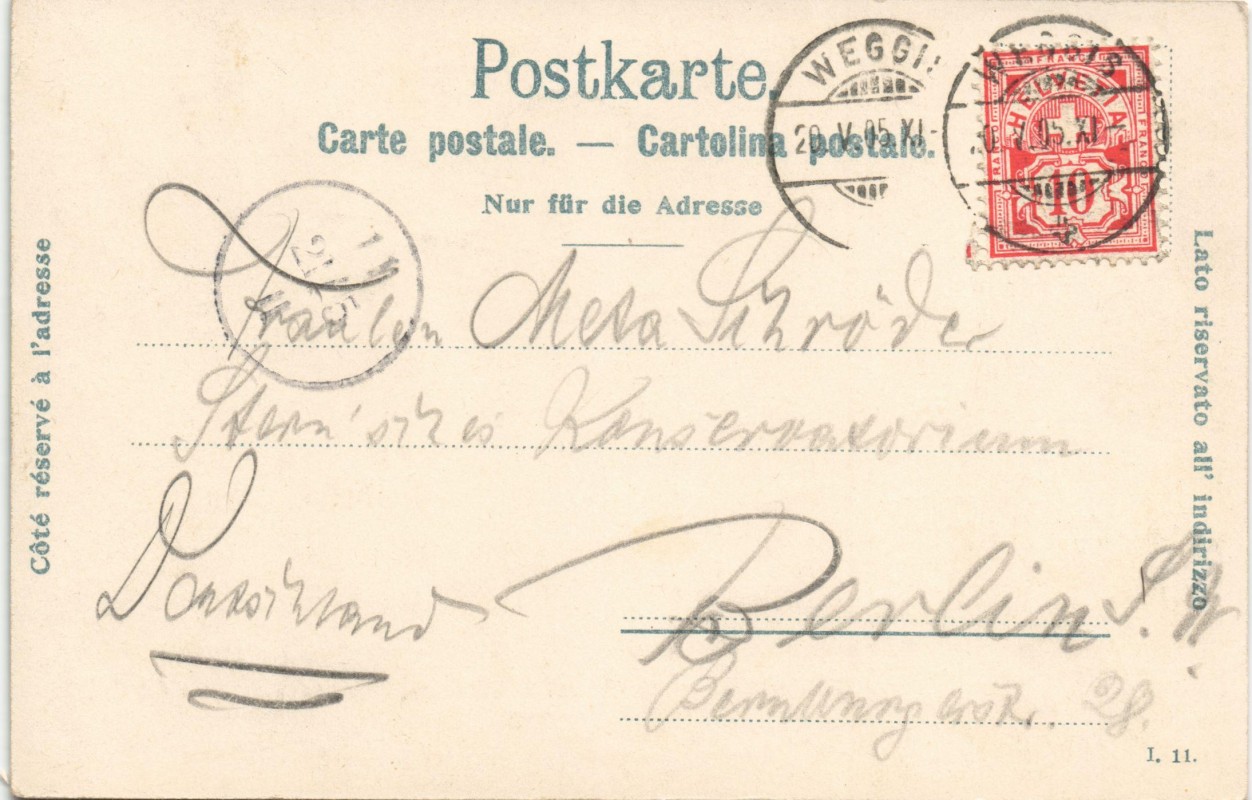 Postkarte.
Carte postale. — Cartolina postale.
Nur für die Adresse
WEGGIS
20. V. 05. XI-
WEGGIS
20. V. 05. XI-
FRANCO
HELVETIA
10
Côté réservé à l'adresse
Lato riservato all' indirizzo
Fräulein Meta Schröder
Stern'sches Konservatorium
Deutschland
Berlin S. W.
Bernburgerstr.
I. 11.